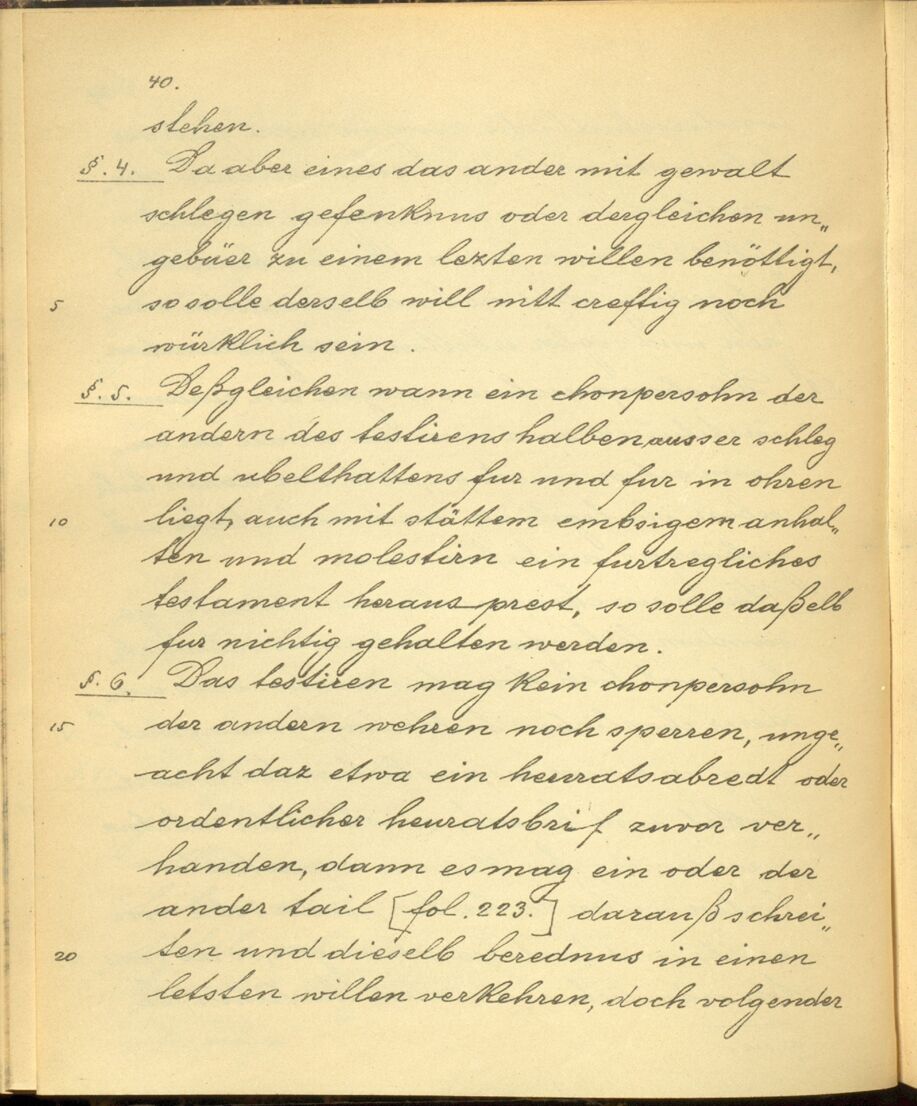 40.
stehen.
§. 4. Da aber eines das ander mit gewalt
schlegen gefenknus oder dergleichen un„
gebüer zu einem lezten willen benöttigt,
5 so solle derselb will nitt creftig noch
würklich sein.
§. 5. Deßgleichen wann ein chonpersohn der
andern des testirens halben ausser schleg
und ubelthattens fur und fur in ohren
10 liegt, auch mit stättem embsigem anhal„
ten und molestirn ein furtregliches
testament heraus prest, so solle daßelb
fur nichtig gehalten werden.
§. 6. Das testiren mag kein chonpersohn
15 der andern wehren noch sperren, unge„
acht daz etwa ein heuratsabredt oder
ordentlicher heuratsbrif zuvor ver„
handen, dann es mag ein oder der
ander tail [fol. 223.] darauß schrei„
20 ten und dieselb berednus in einen
letsten willen verkehren, doch volgender